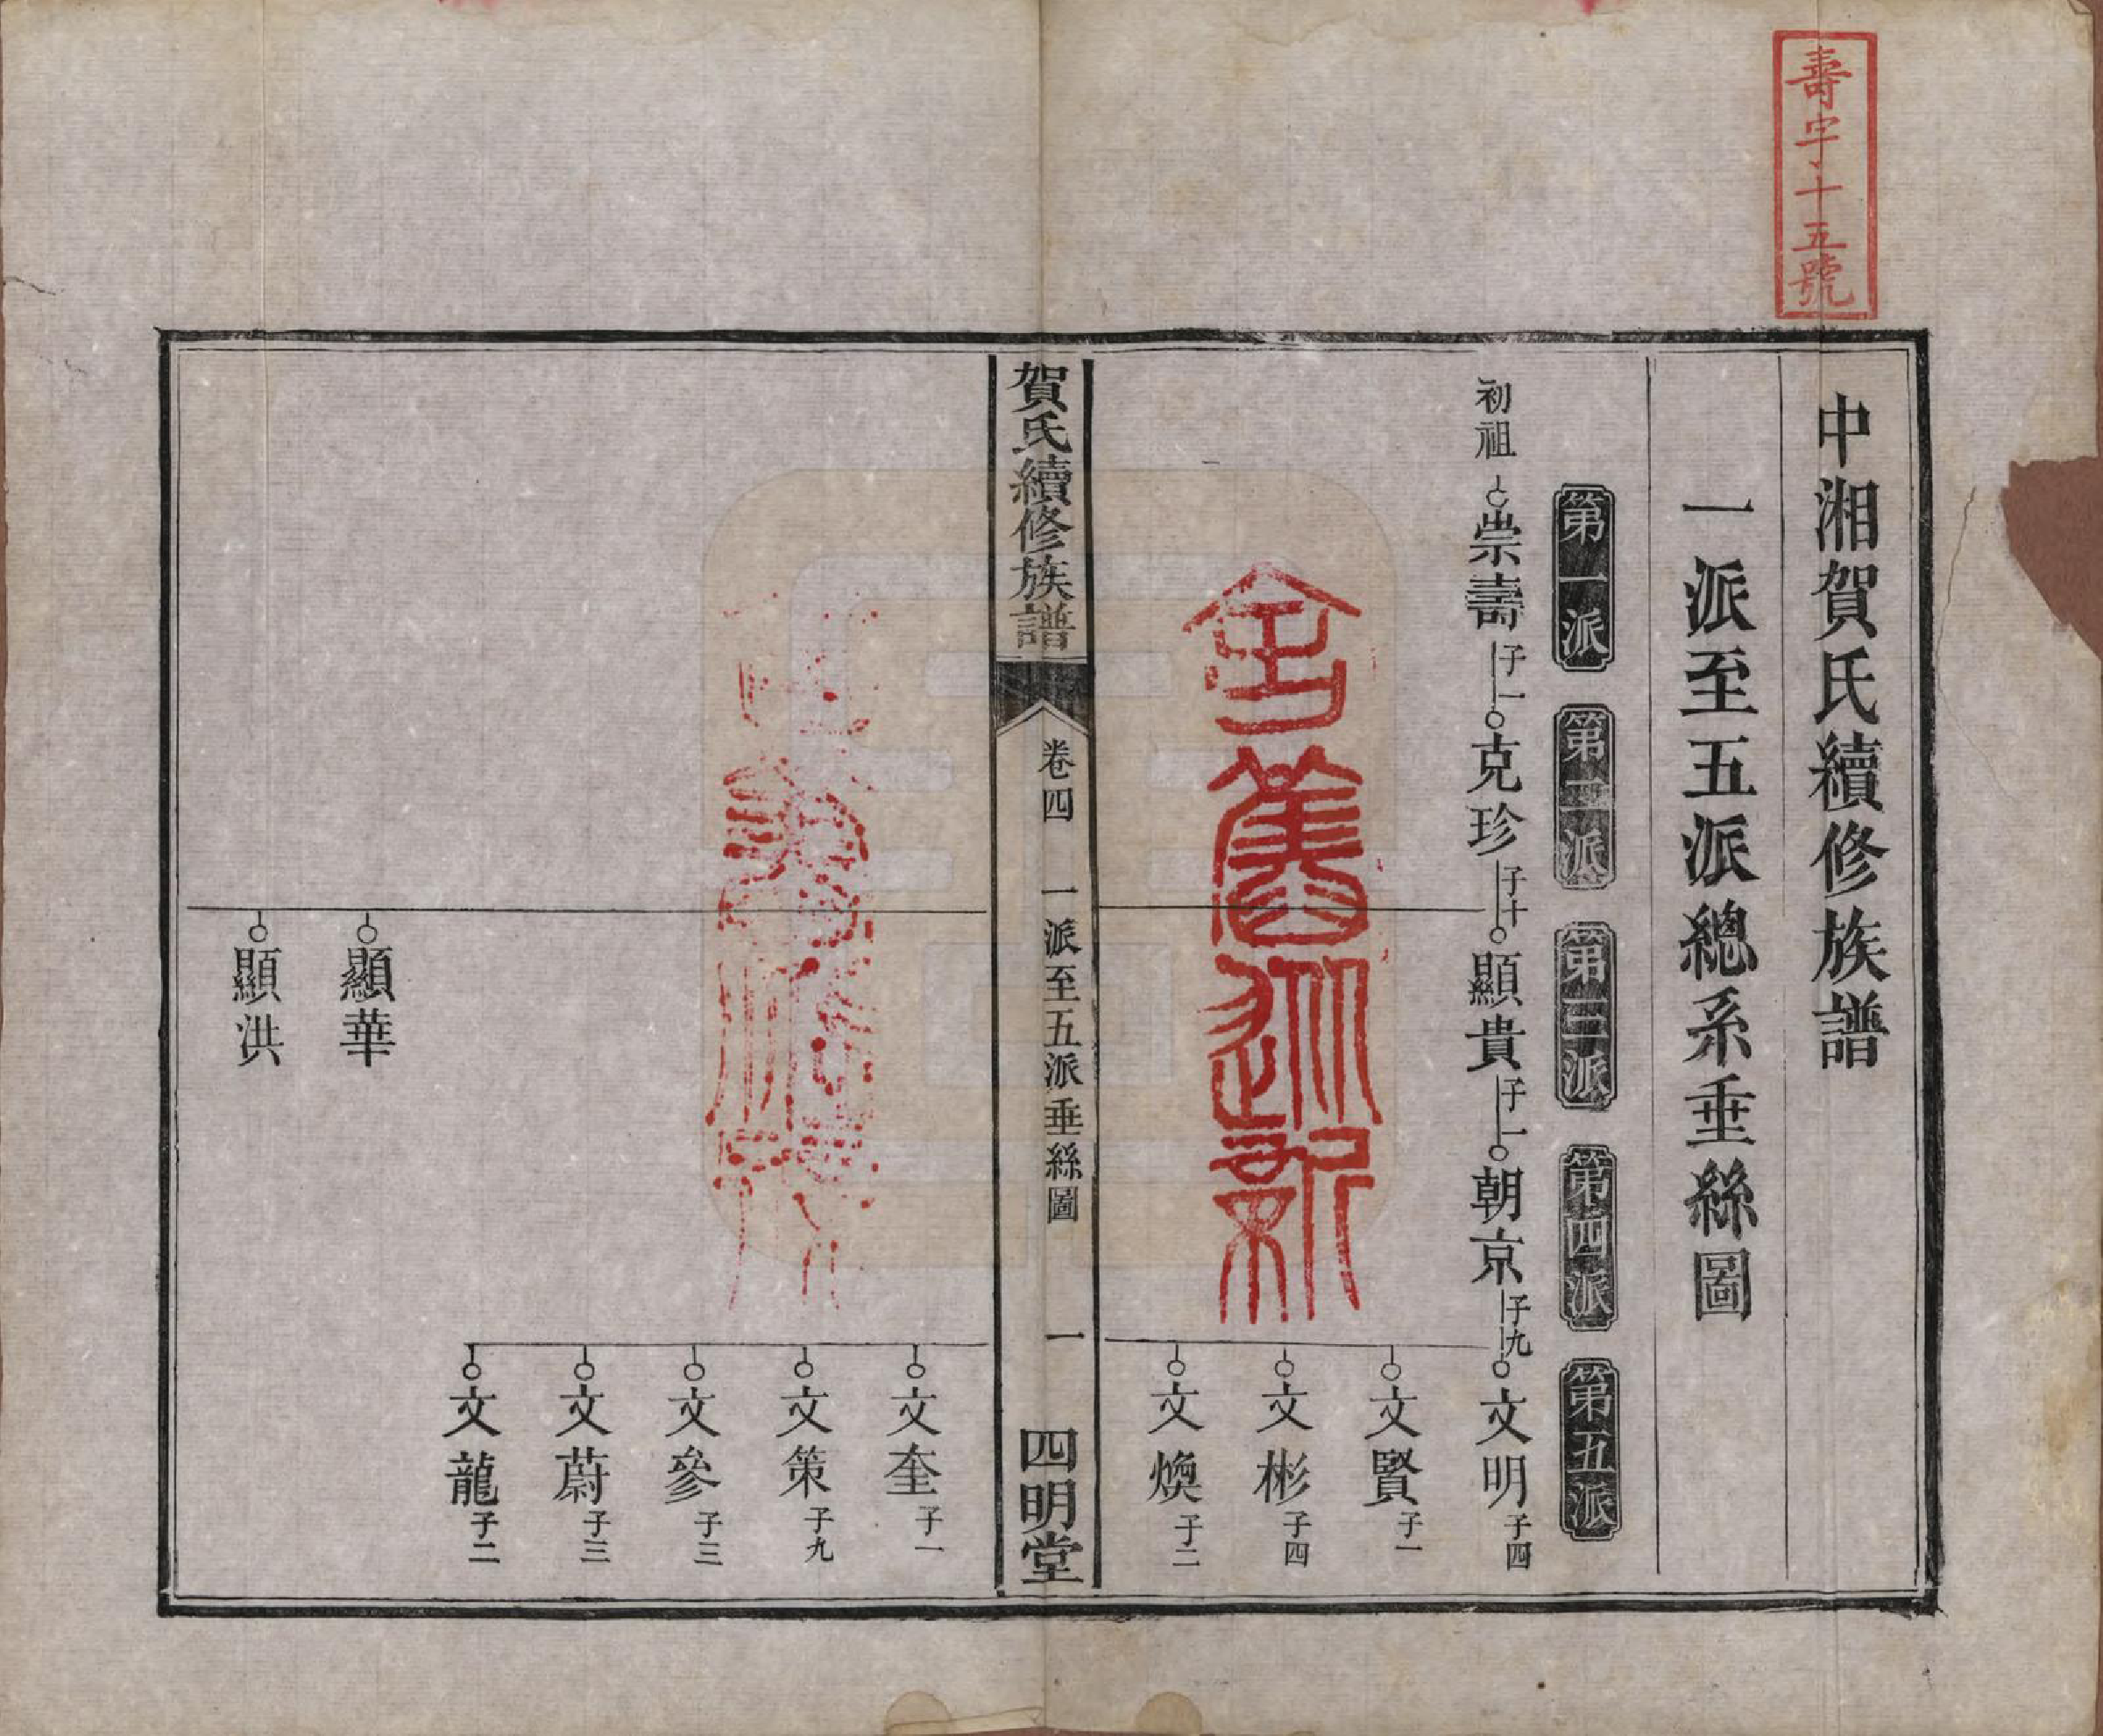 壽字十五號
中湘賀氏續修族譜
一派至五派總系垂絲圖
第一派
第二派
第三派
第四派
第五派
初祖
崇壽 子一
克珍 子十
顯貴 子一
朝京 子九
文明 子四
文賢 子一
文彬 子四
文煥 子二
賀氏續修族譜
卷四
一派至五派垂絲圖
一
四明堂
文奎 子一
文策 子九
文參 子三
文蔚 子三
文龍 子二
顯華
顯洪